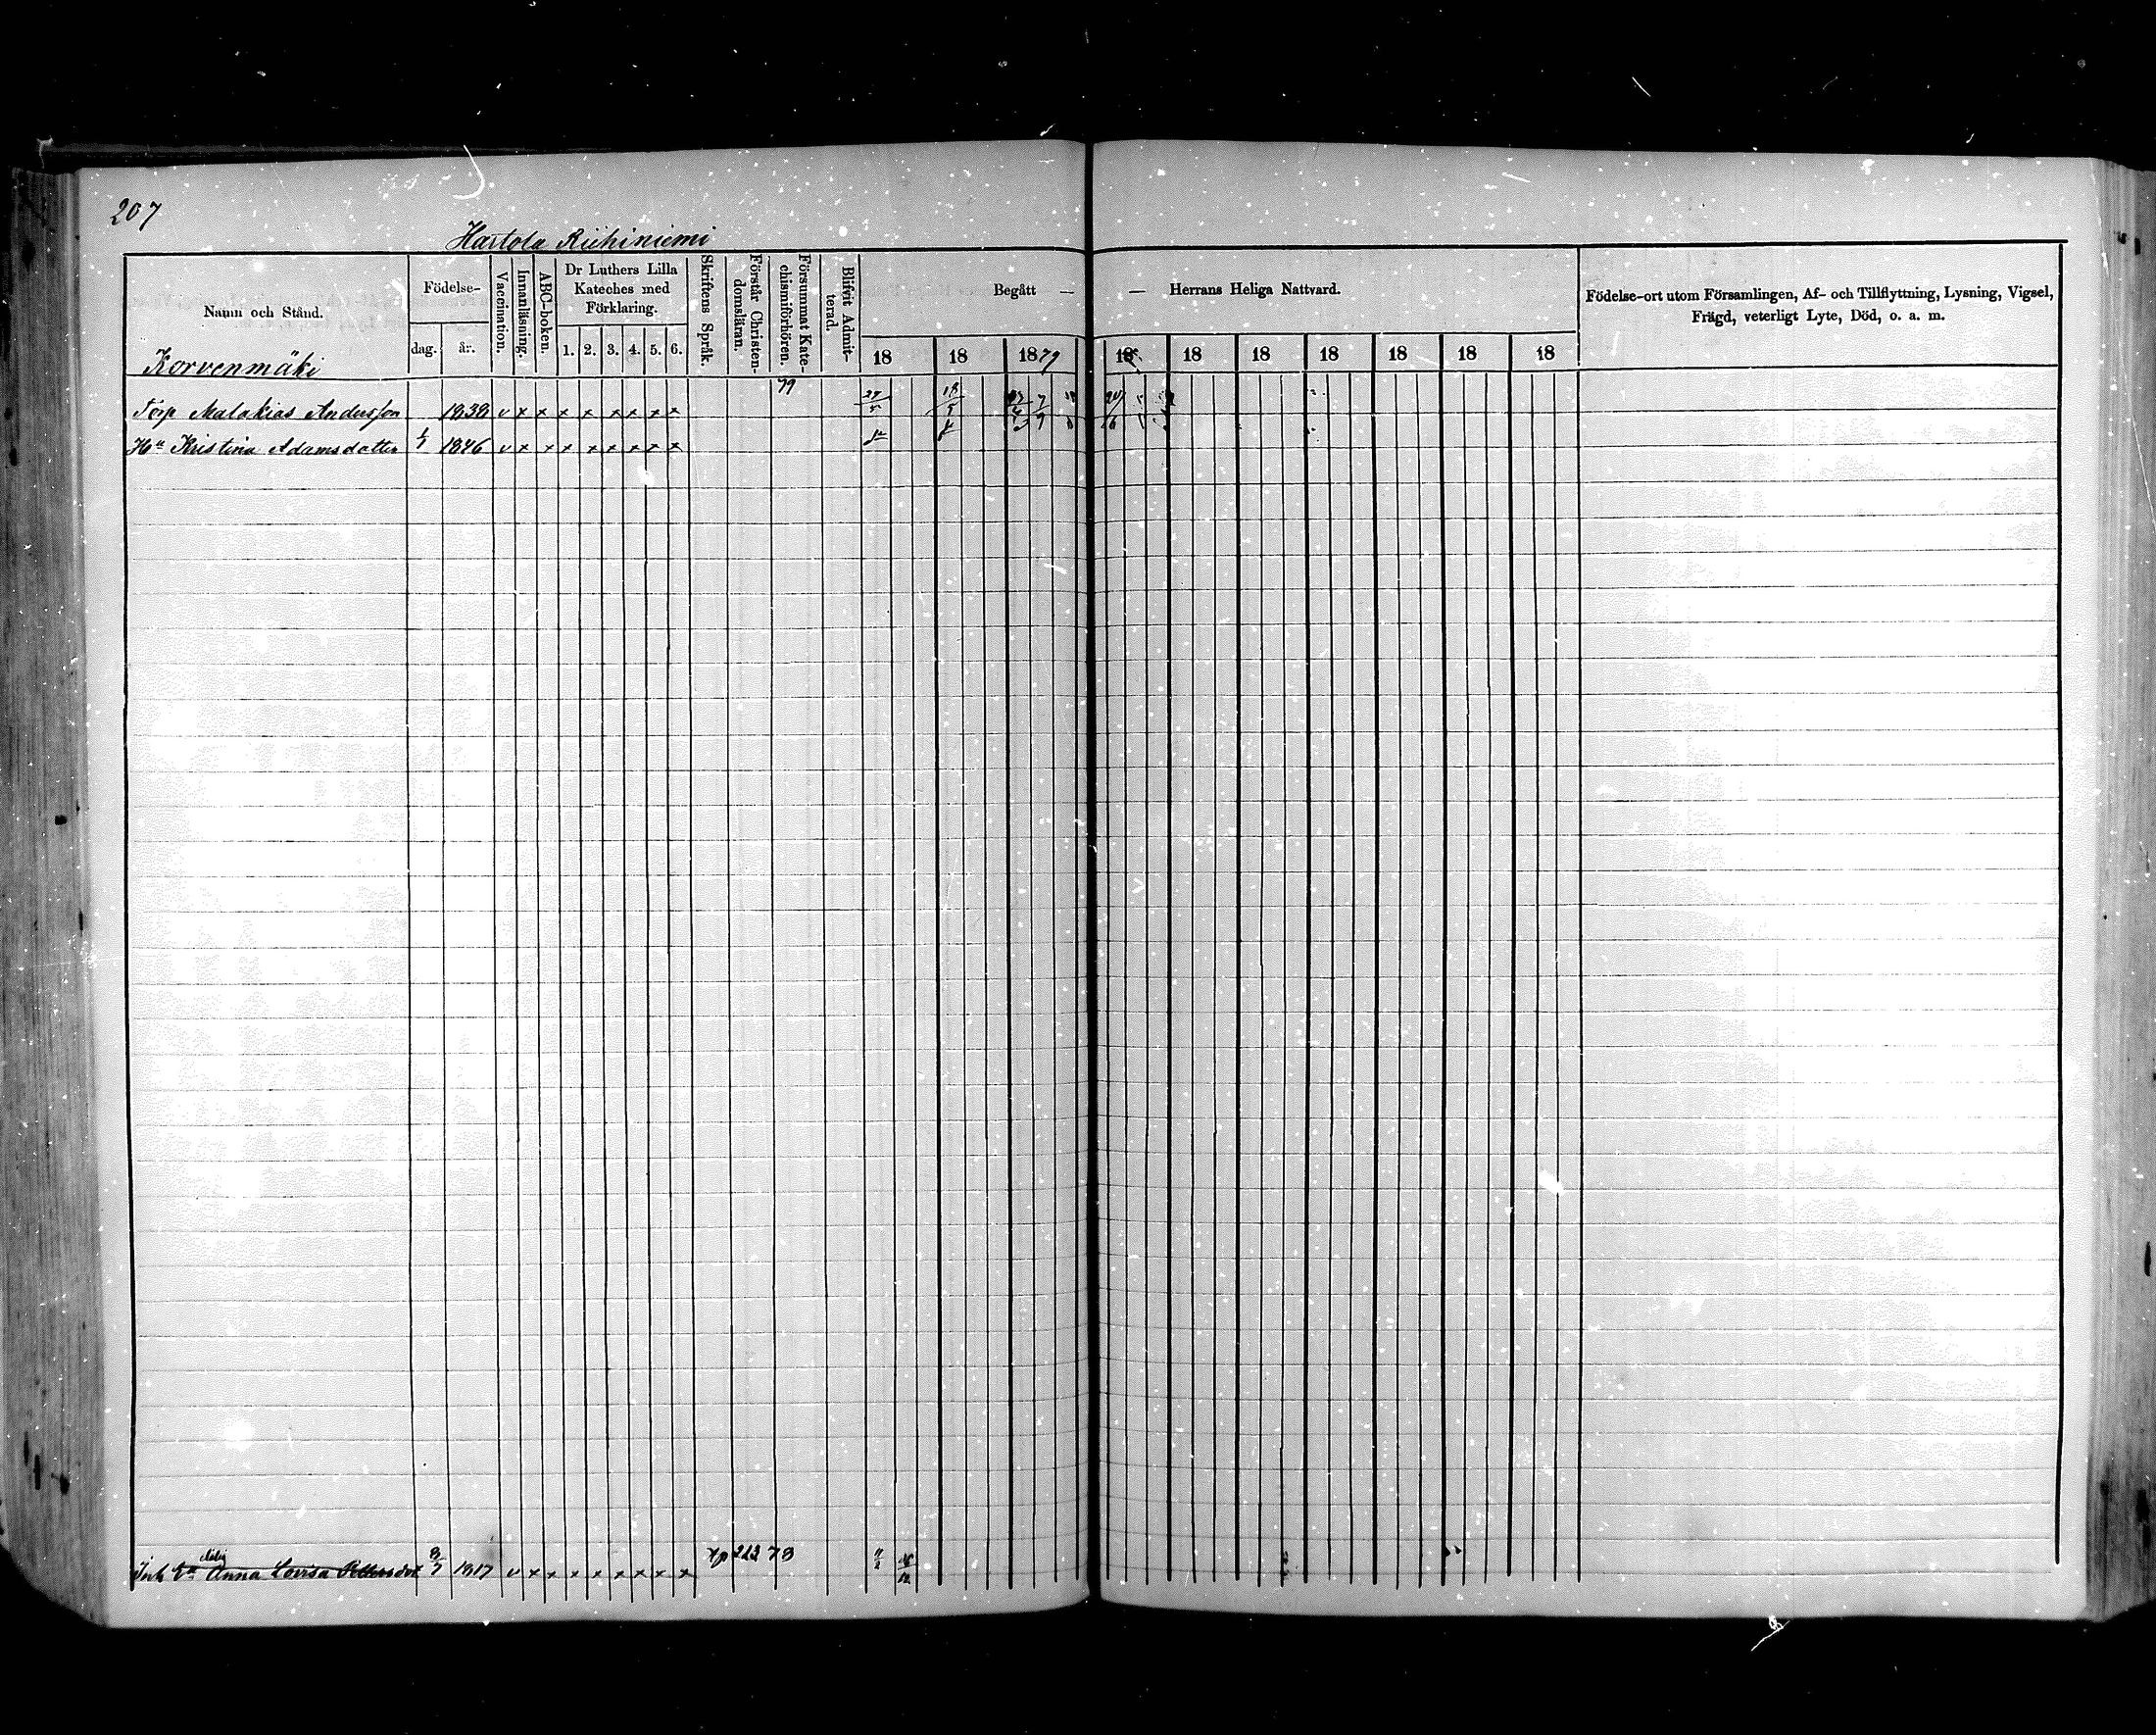 207
Hartola Riihiniemi
Namn och Stånd.
Födelse-
dag. år.
Vaccination.
Innanläsning.
ABC-boken.
Dr Luthers Lilla
Kateches med
Förklaring.
1. 2. 3. 4. 5. 6.
Skriftens Språk.
Förstår Christen-
domsläran.
Försummat Kate-
chismiförhören.
Blifvit Admit-
terad.
Begått — — Herrans Heliga Nattvard.
18 18 1879 18 18 18 18 18 18 18
Födelse-ort utom Församlingen, Af- och Tillflyttning, Lysning, Vigsel,
Frägd, veterligt Lyte, Död, o. a. m.
Korvenmäki
79
Torp Malakias Andersson 1838 v x x x x x x x x
Hu Kristina Adamsdotter 1846 v x x x x x x x x
Anna Lovisa Pettersdot 8/7 1817 v x x x x x x x x 222 73